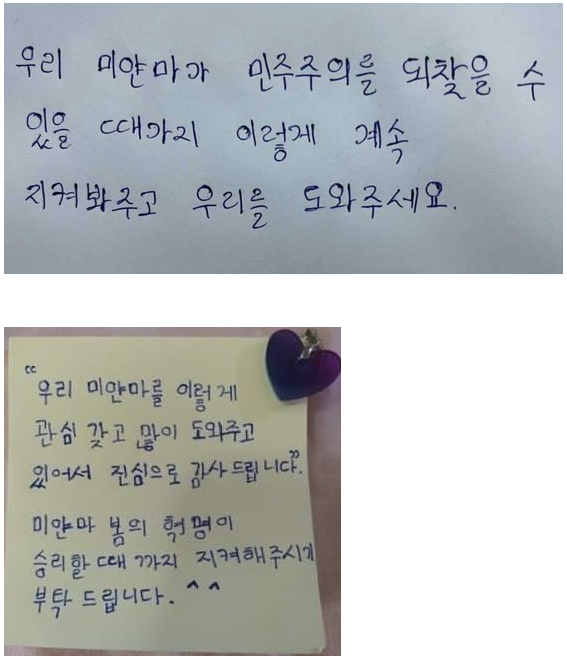 우리 미얀마가 민주주의를 되찾을 수
있을 때가지 이렇게 계속
지켜봐주고 우리를 도와주세요.
“우리 미얀마를 이렇게
관심 갖고 많이 도와주고
있어서 진심으로 감사드립니다”.
미얀마 봄의 혁명이
승리할 때 까지 지켜해주시기
부탁 드립니다. ^^